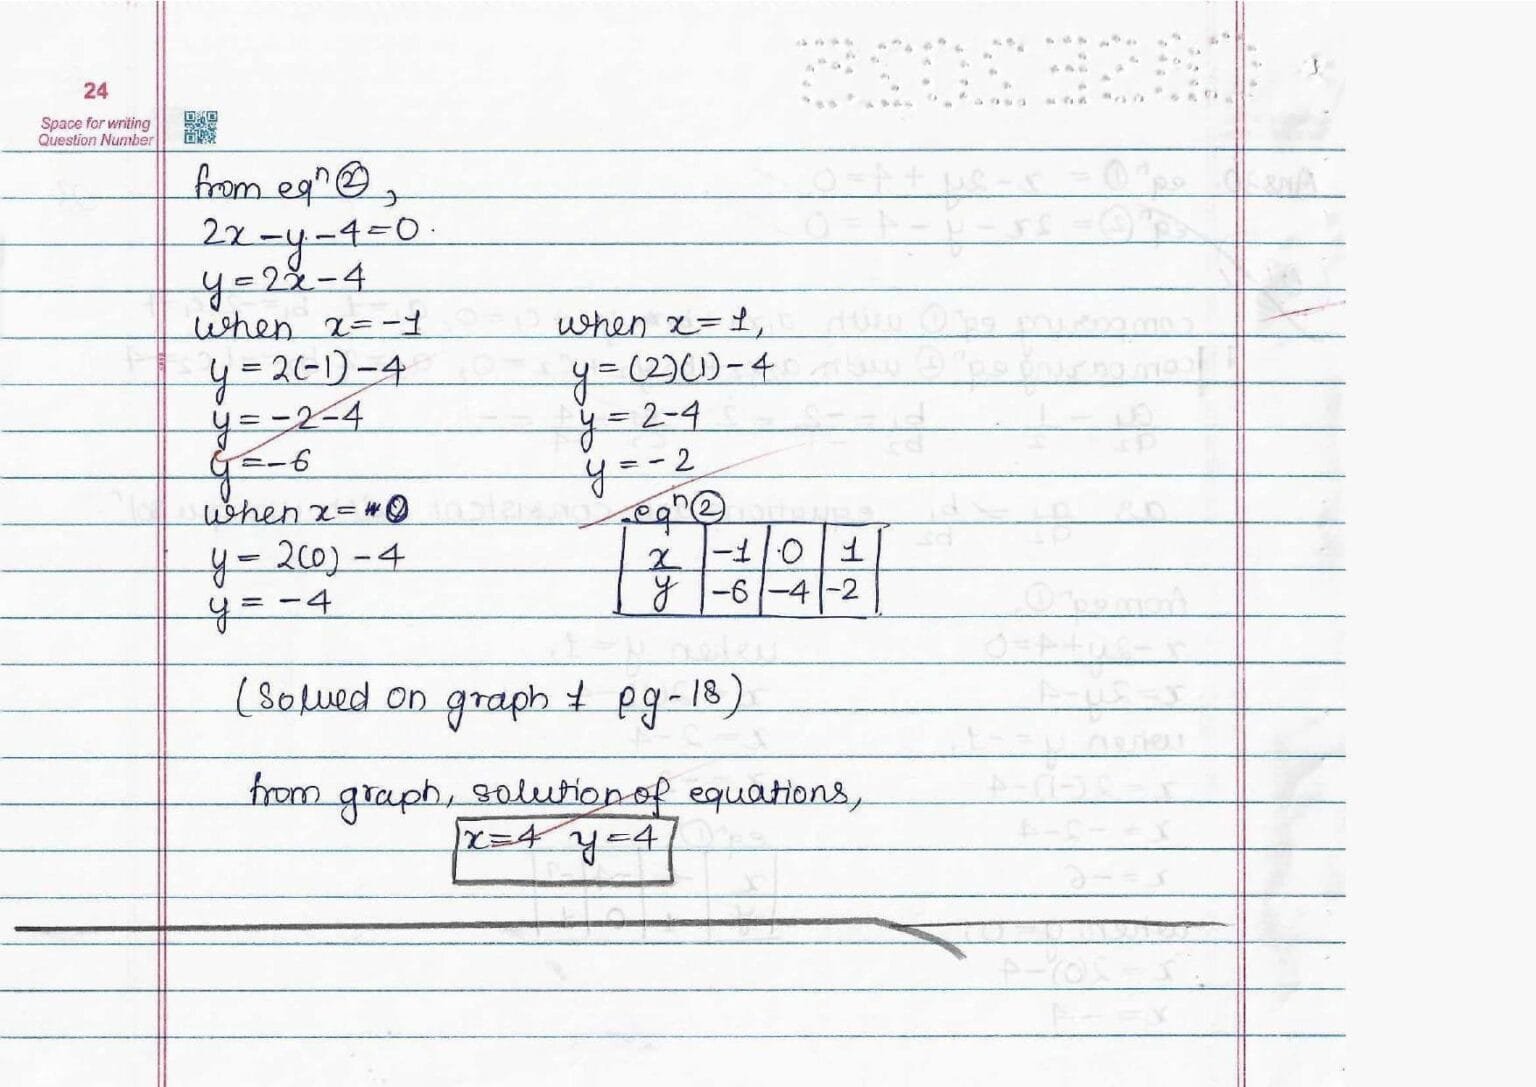 24
Space for writing
Question Number
CBSE 2025
from eqⁿ ②,
2x - y - 4 = 0.
y = 2x - 4
when x = -1
y = 2(-1) - 4
y = -2 - 4
y = -6
when x = 0
y = 2(0) - 4
y = -4
when x = 1,
y = (2)(1) - 4
y = 2 - 4
y = -2
eqⁿ ②
x | -1 | 0 | 1
y | -6 | -4 | -2
(Solved on graph 1 pg-18)
from graph, solution of equations,
x = 4 y = 4